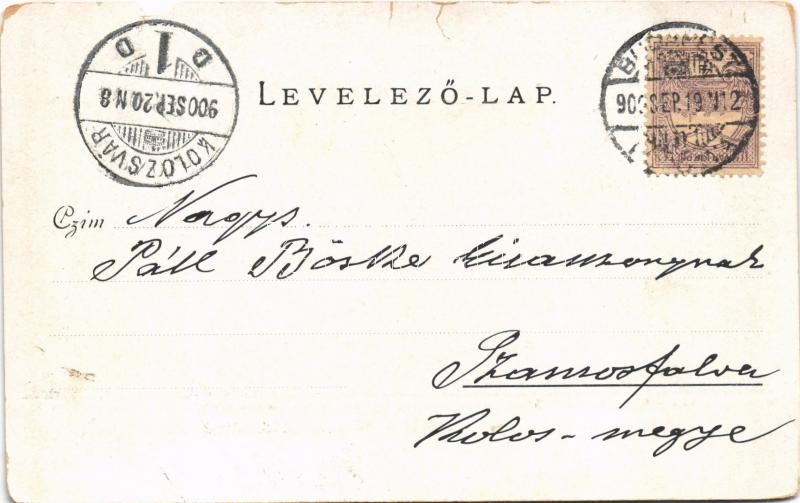 LEVELEZŐ-LAP.
BUDAPEST
900 SEP. 19 N 12
D 1 D
900 SEP. 20. N 8
KOLOZSVÁR
Czim Nagys.
Páll Böske kisasszonynak
Szamosfalva
Kolos-megye